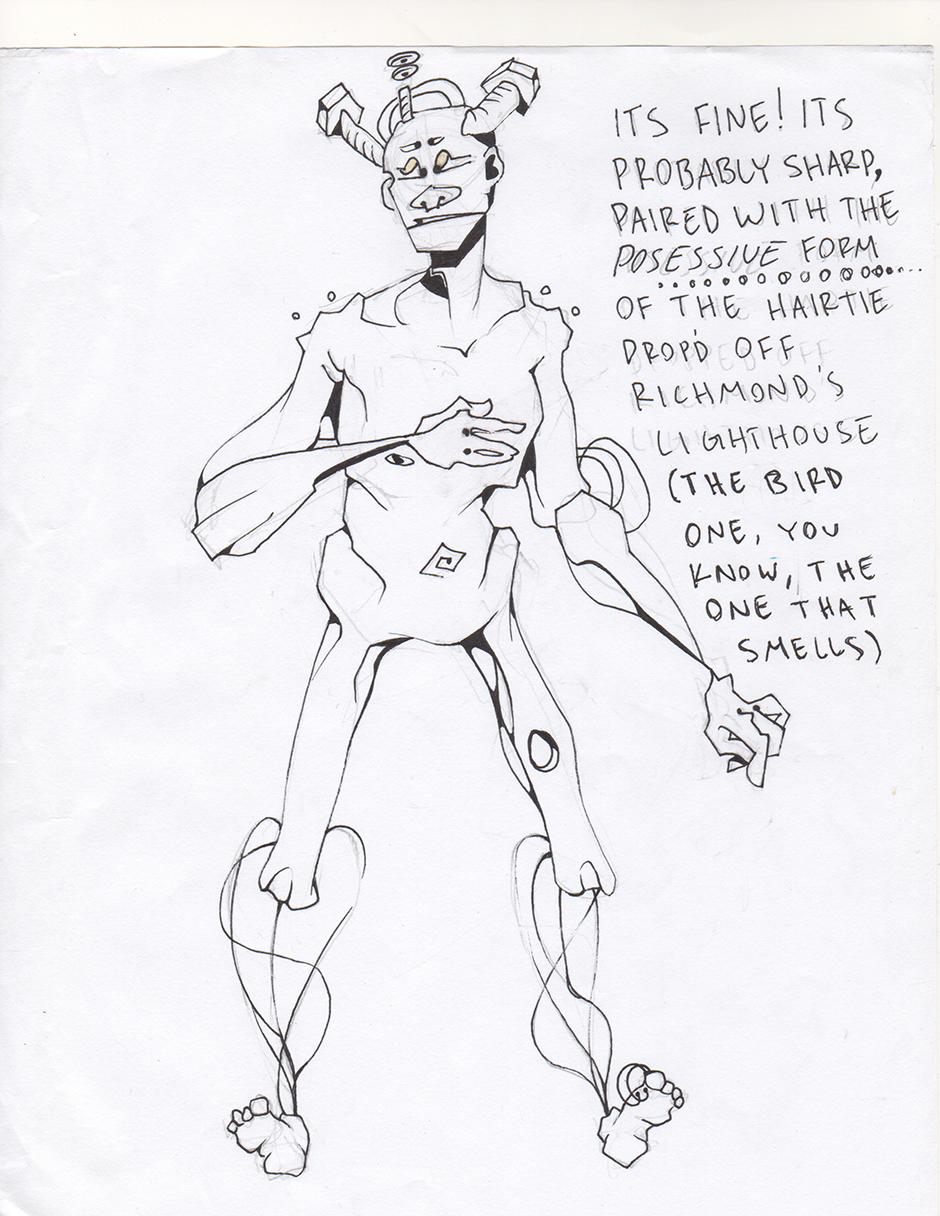 ITS FINE! ITS
PROBABLY SHARP,
PAIRED WITH THE
POSESSIVE FORM
OF THE HAIRTIE
DROP'D OFF
RICHMOND'S
LIGHTHOUSE
(THE BIRD
ONE, YOU
KNOW, THE
ONE THAT
SMELLS)